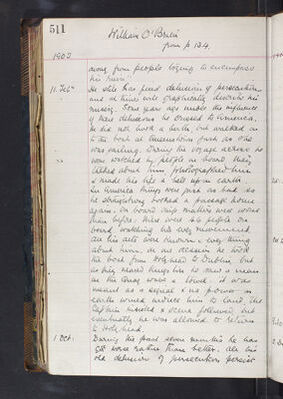 511
William O'Brien
from p 134.
1903
away from people trying to encompass
his ruin"
11 Feby
He still has fixed delusions of persecution
and at times will graphically describe his
misery. Some years ago under the influence
of these delusions he crossed to America.
He did not book a berth but walked on
to the boat at Queenstown just as she
was sailing. During the voyage across he
was watched by people on board, they
talked about him, photographed him
& made his life a hell upon earth.
In America things were just as bad so
he straightway booked a passage home
again. On board ship matters were worse
than before. There were people on
board watching his every movement
all his acts were known & everything
about him. On one occasion he took
the boat from Holyhead to Dublin but
as they neared Kingstown he saw a man
on the Quay wave a towel. it was
meant as a signal & no power on
earth would induce him to land. The
Captain insisted & scene followed but
eventually he was allowed to return
to Holyhead.
1 Oct.
During the past seven months he has
got worse rather than better. All his
old delusions of persecution persist